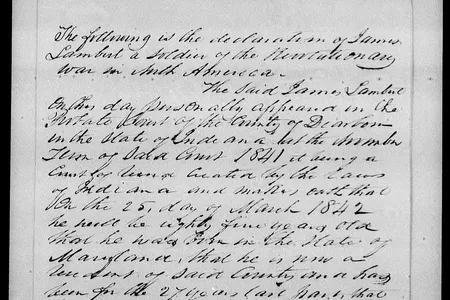 The following is the declaration of James
Lambert a soldier of the Revolutionary
War in North America.
The Said James Lambert
On this day personally appeared in the
Probate Court of the County of Dearborn
in the State of Indiana at the November
Term of Said Court 1841 it being a
Court of Record created by the Laws
of Indiana and makes oath that
On the 25, day of March 1842
he will be eighty five years old
that he was born in the State of
Maryland, that he is now a
resident of said County, and has
been for the 27 years last past, that